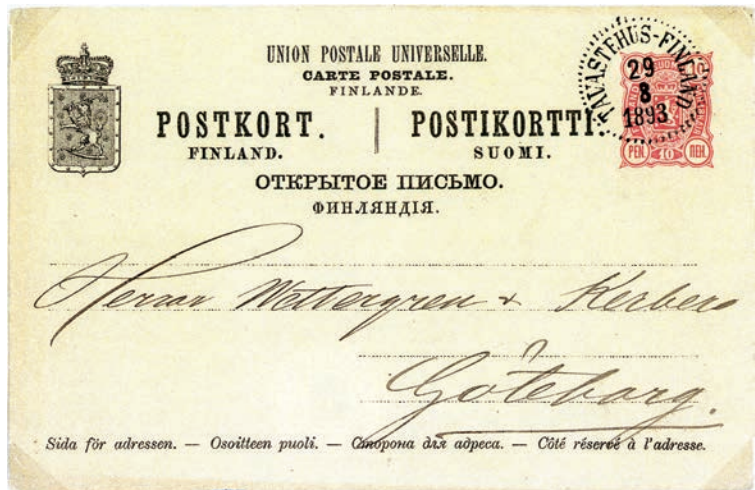 UNION POSTALE UNIVERSELLE.
CARTE POSTALE.
FINLANDE.
POSTKORT. POSTIKORTTI.
FINLAND. SUOMI.
ОТКРЫТОЕ ПИСЬМО.
ФИНЛЯНДІЯ.
TAVASTEHUS-FINLAND
29
8
1893
10 10
PEN 10 ПЕН
Herrar Wettergren & Kerbers
Göteborg.
Sida för adressen. — Osoitteen puoli. — Сторона для адреса. — Côté réservé à l'adresse.